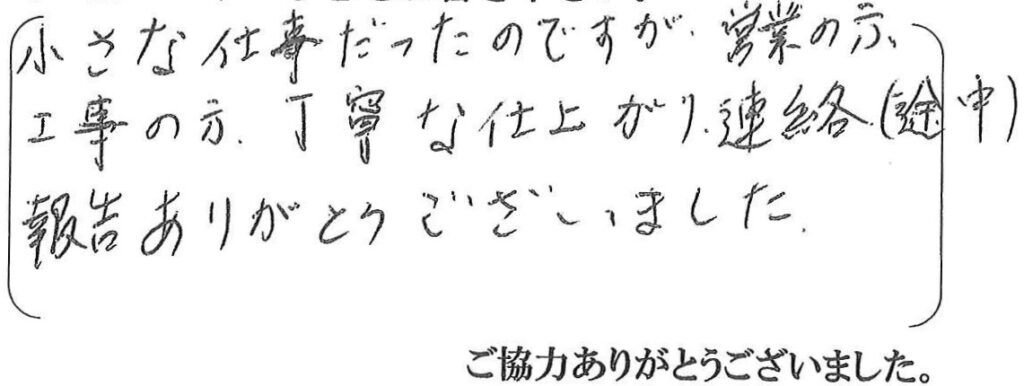 小さな仕事だったのですが、営業の方、
工事の方、丁寧な仕上がり、連絡、(途中)
報告ありがとうございました。
ご協力ありがとうございました。